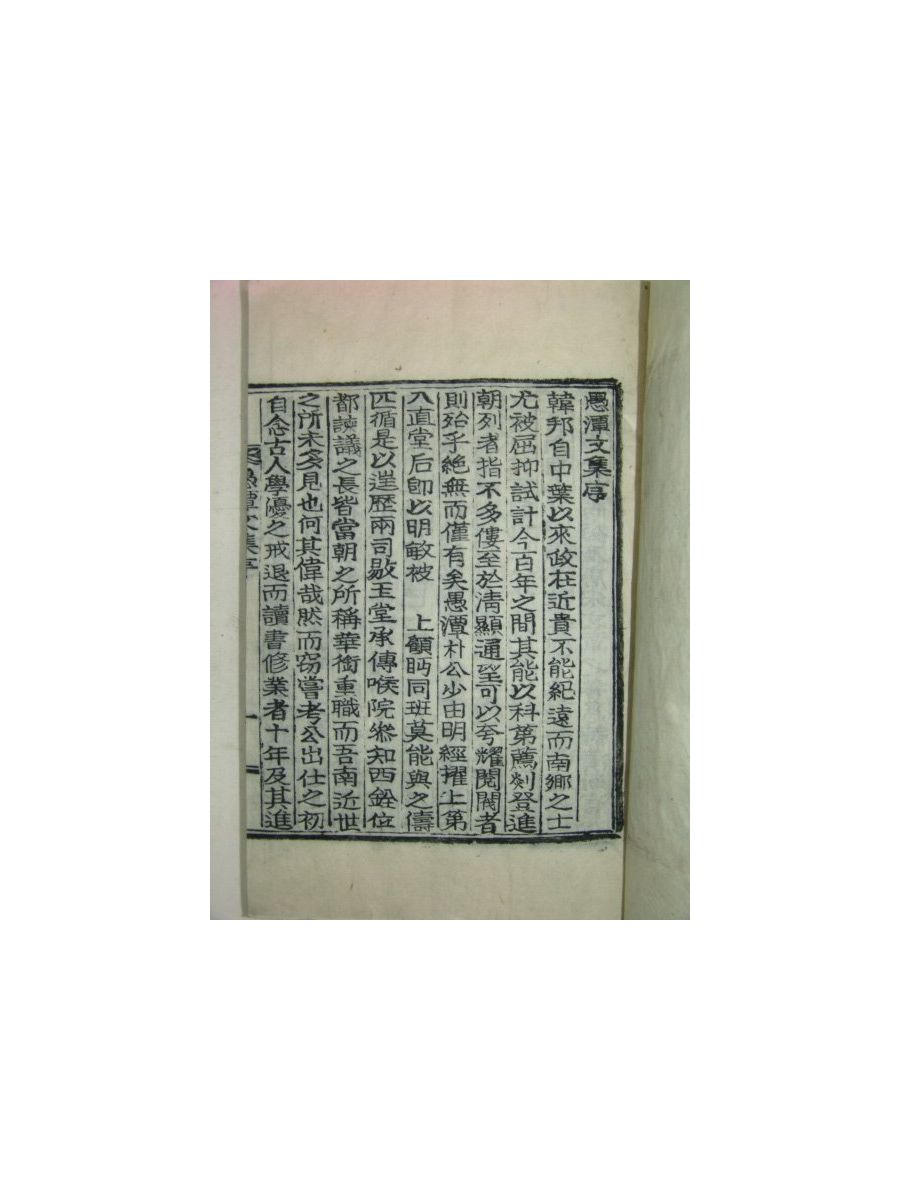 愚潭文集序
韓邦自中葉以來政在近貴不能紀遠而南鄉之士
尤被屈抑試計今百年之間其能以科第薦剡登進
朝列者指不多僂至於淸顯通望可以夸耀閥閱者
則殆乎絶無而僅有矣愚潭朴公少由明經擢上第
入直堂后卽以明敏被 上顧眄同班莫能與之儔
匹循是以遑歷兩司敭玉堂承傳喉院叅知西銓位
都諫議之長皆當朝之所稱華銜重職而吾南近世
之所未多見也何其偉哉然而窃嘗考公出仕之初
自念古人學優之戒退而讀書修業者十年及其進
愚潭文集序 一